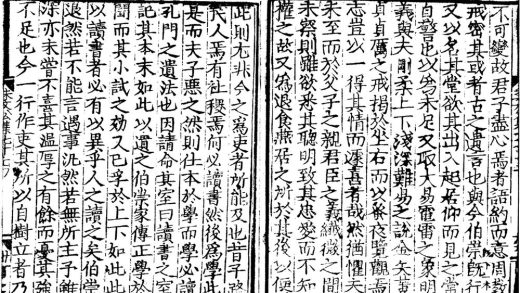 不可變故君子盡心焉者語約而意周教
戒密其或者古之遺言也與今伯崇所行
又以名其堂欲其出入起居仰而見之常
自警也以爲未足又取大易雷電之象明
義與夫剛柔上下淺深難易之說金矢艱
貞貞厲之戒揭於坐右而以蚤夜覽觀焉
志豈以一得其情而遽喜者哉然猶懼夫
未至而於父子之親君臣之義纖微之
未察則雖欲悉其聰明致其忠愛而不知
權之故又爲退食燕居之所於其後以便
此則尤非今之爲吏者所能及也昔子路
民人焉有社稷焉何必讀書然後爲學此
是而夫子惡之然則仕本於學而學必讀
孔門之遺法也因請命其室曰讀書之室
記其本末如此以遺之伯崇家傳正學於
聞而其小試之効又已孚於上下如此此
以讀書者必有以異乎人之讀之矣伯崇
退然若不能言遇事汎然若無所主予雖
深亦未嘗不喜其溫厚之有餘而憂其強
不足也今一行作吏其所以自樹立者乃